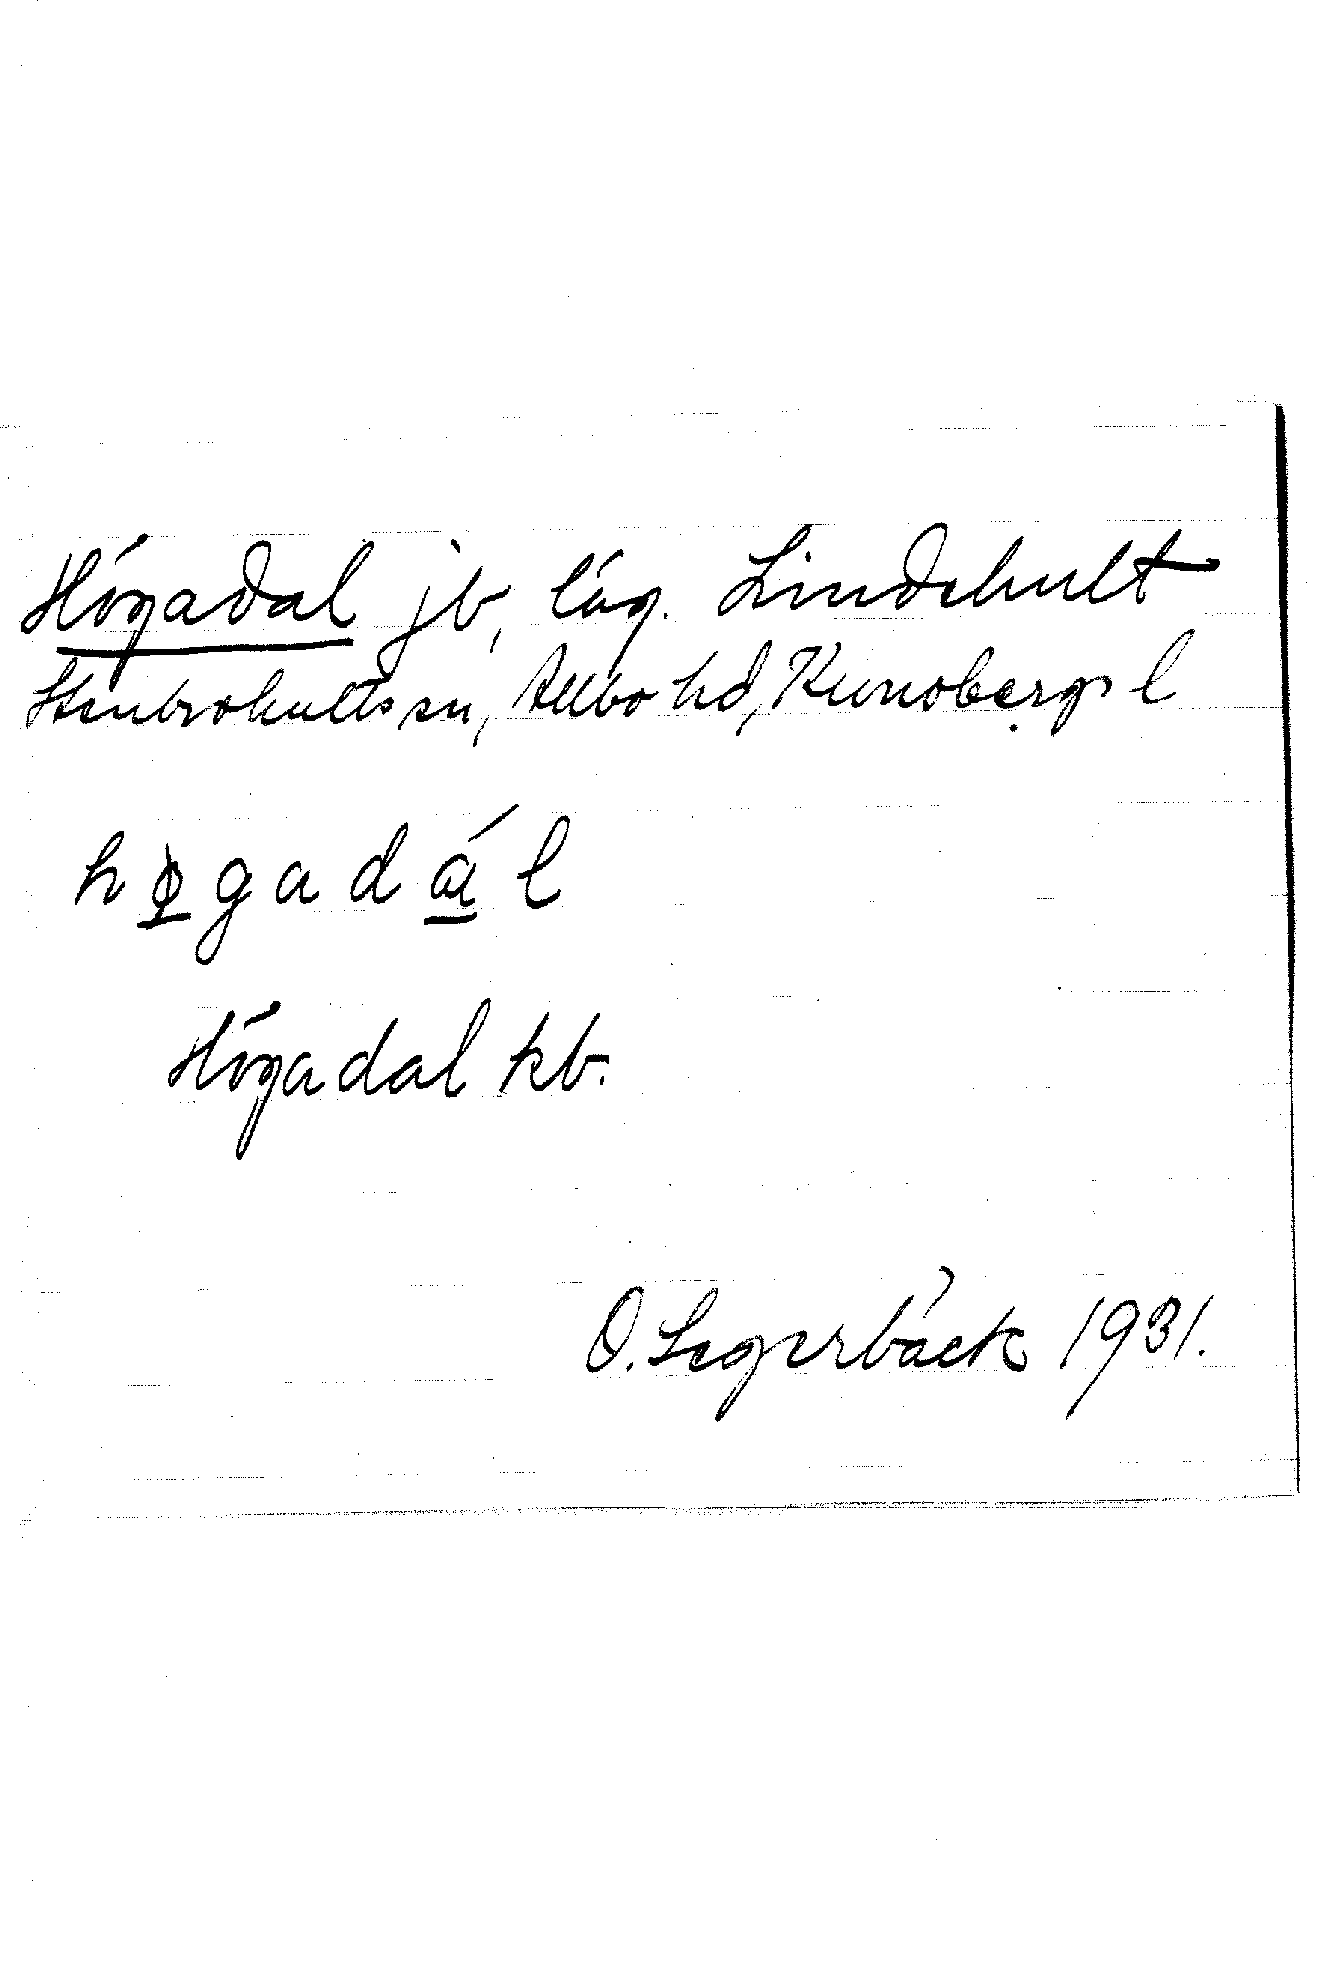 Högadal jb, läg. Lindehult
Stenbrohults sn, Allbo hd, Kronobergs l
høgadál
Högadal kb.
O. Segerbäck 1931.